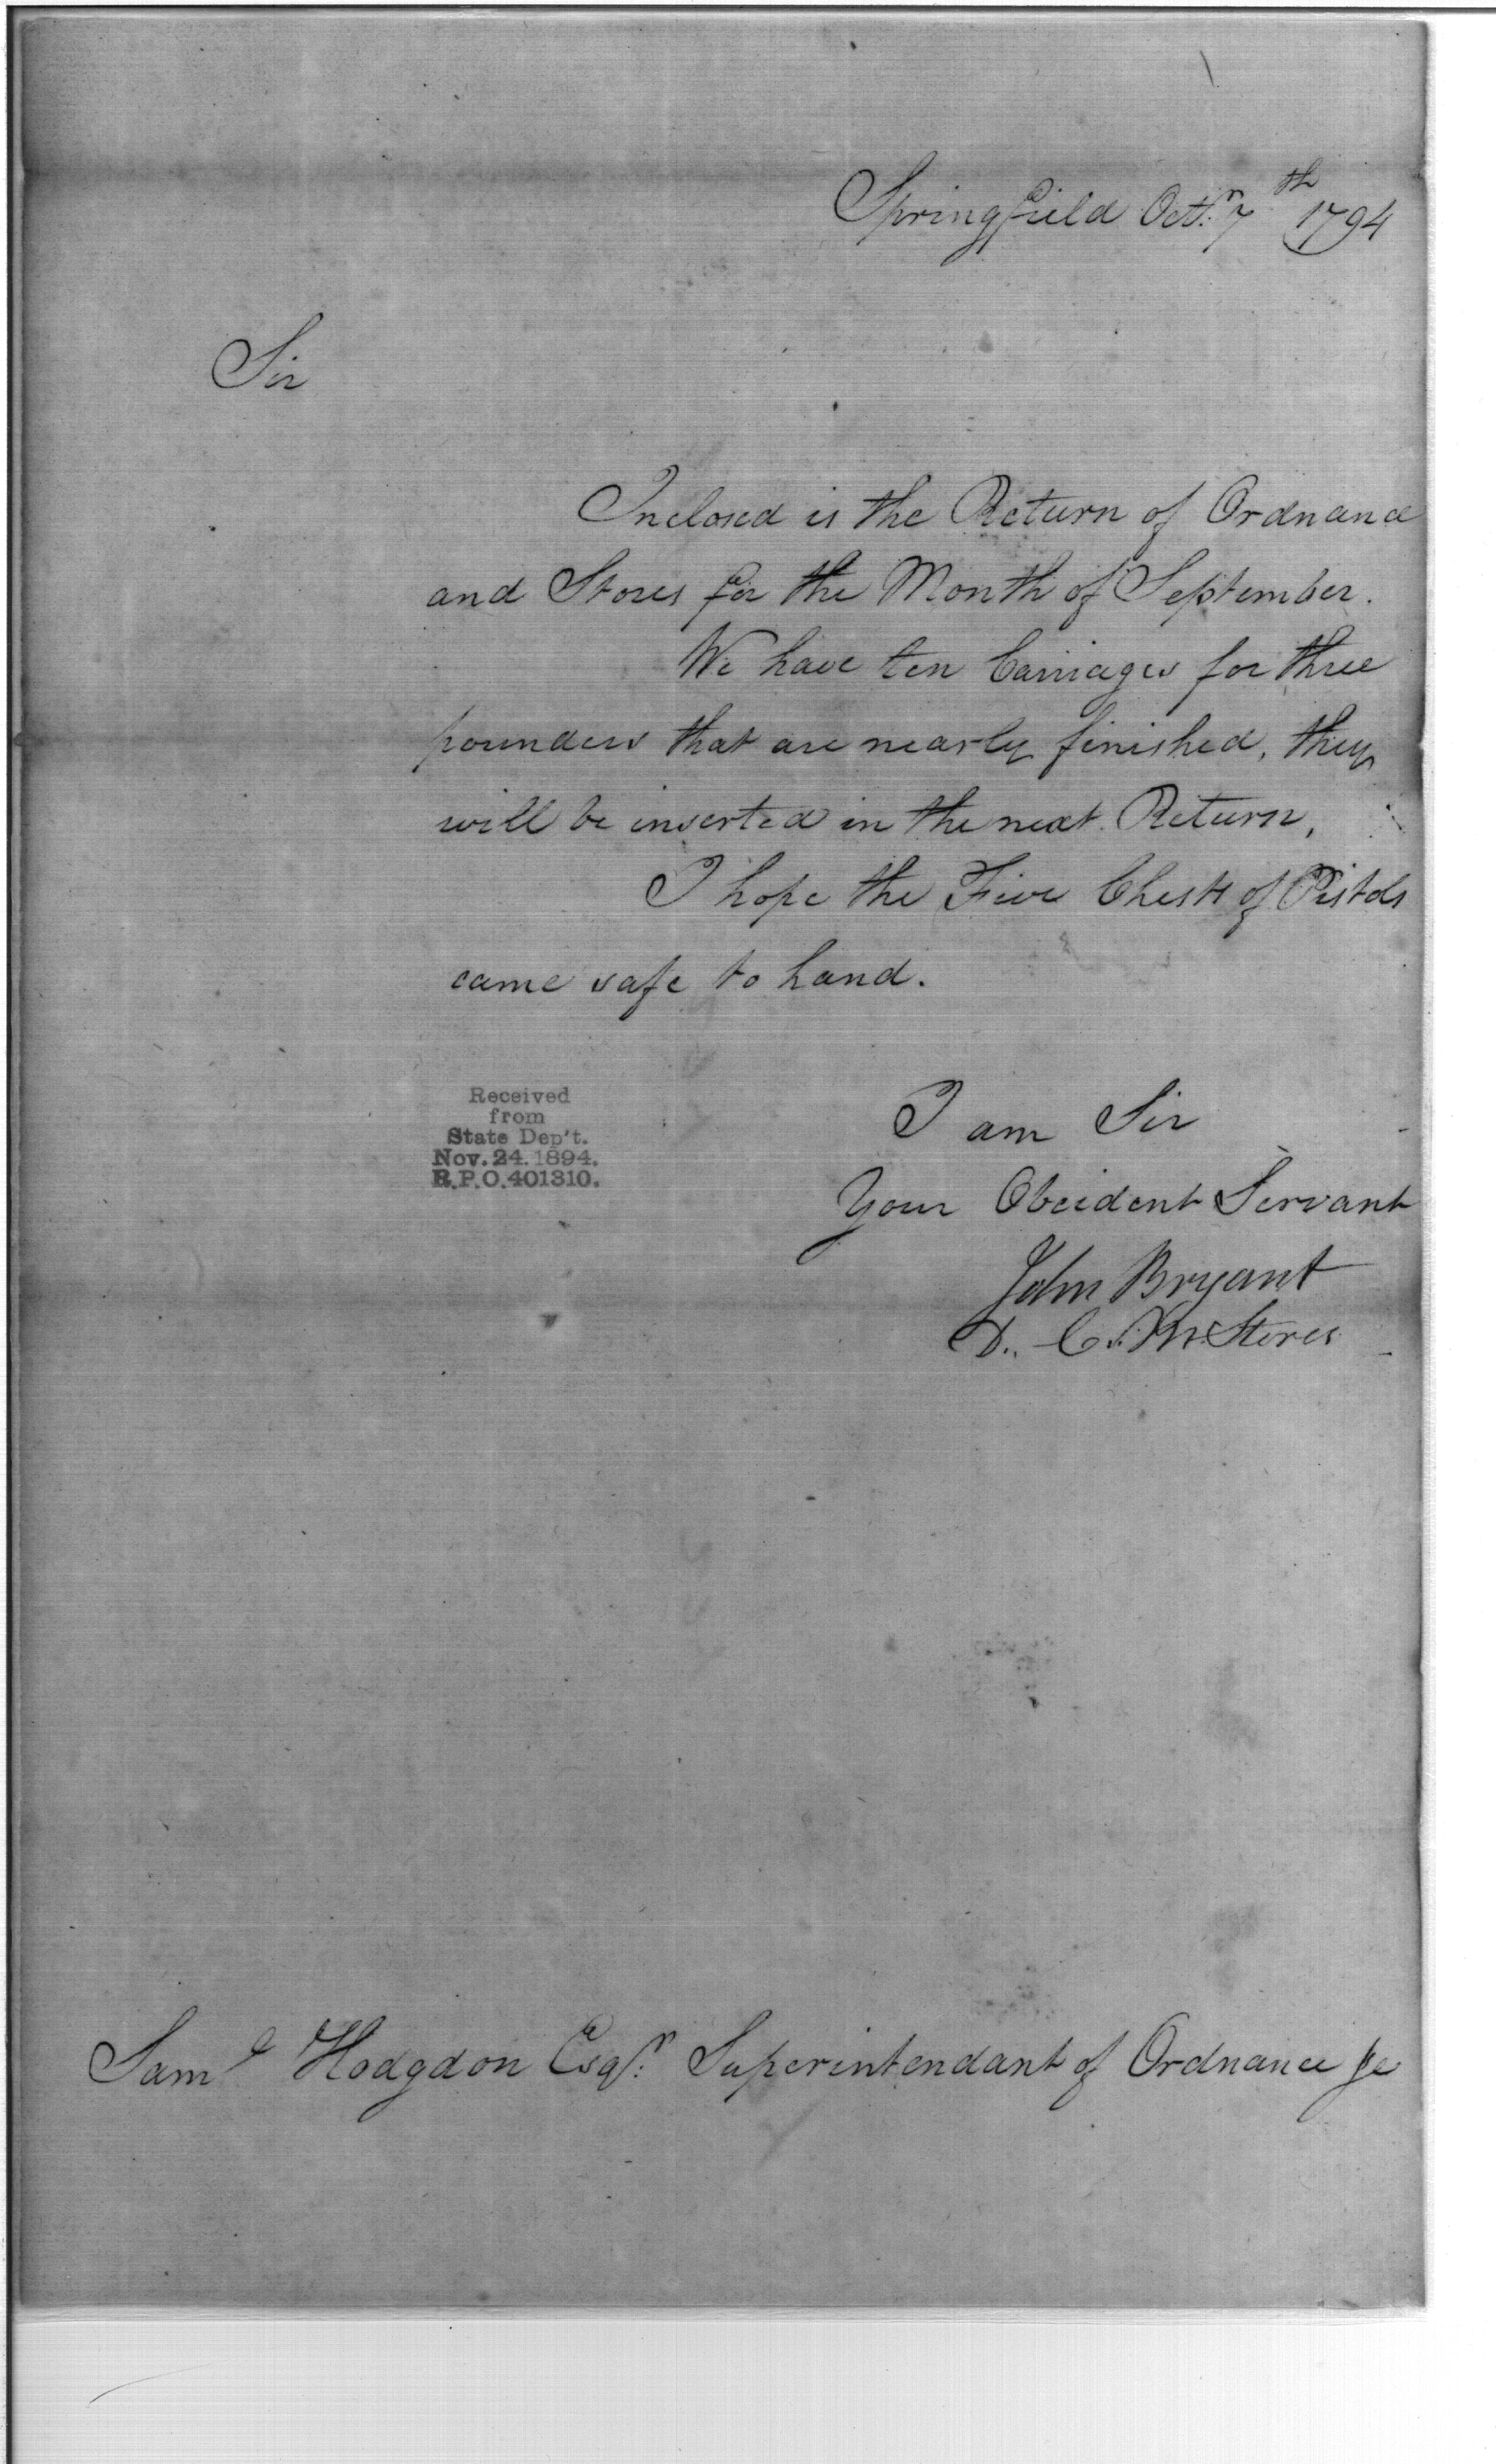 Springfield Octr. 7th 1794
Sir
Inclosed is the Return of Ordnance
and Stores for the Month of September.
We have ten Carriages for three
pounders that are nearly finished, they
will be inserted in the next Return,
I hope the Five Chests of Pistols
came safe to hand.
Received
from
State Dep't.
Nov. 24. 1894.
R.P.O. 401310.
I am Sir
Your Obeident Servant
John Bryant
D.. C. M. Stores
Saml Hodgdon Esqr. Superintendant of Ordnance &c